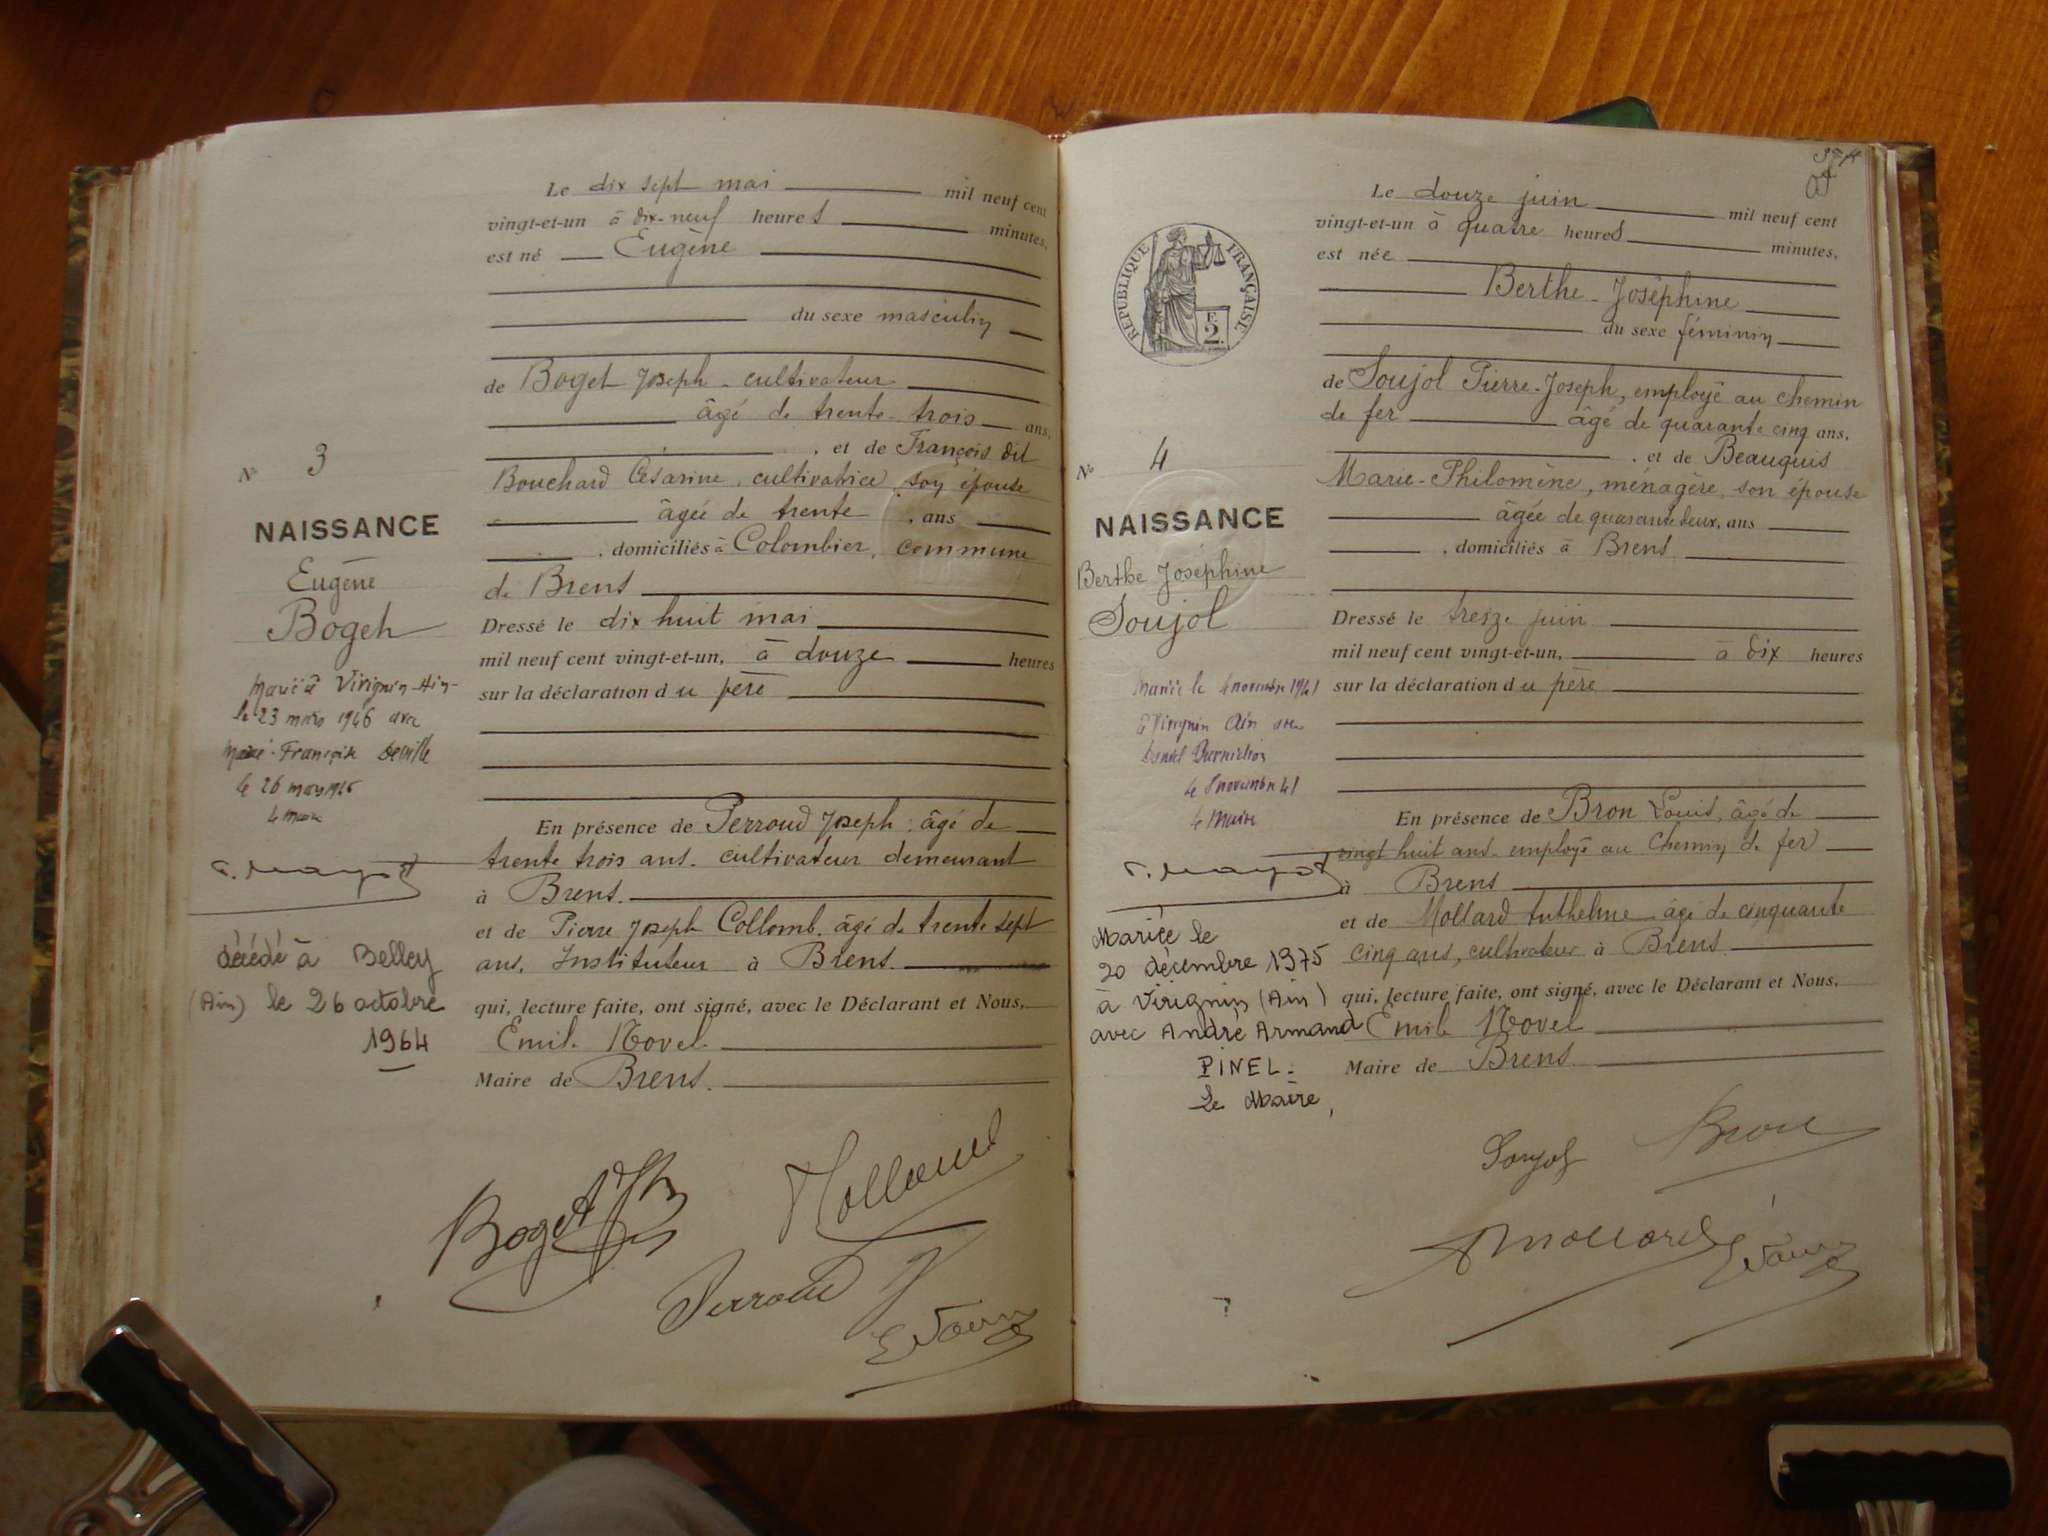 Le dix sept mai mil neuf cent
vingt-et-un à dix-neuf heures minutes,
est né Eugène
du sexe masculin
de Boget Joseph - cultivateur
âgé de trente-trois ans,
, et de François dit
Bouchard Césarine, cultivatrice, son épouse
âgée de trente , ans
, domiciliés à Colombier, commune
de Brens
Dressé le dix huit mai
mil neuf cent vingt-et-un, à douze heures
sur la déclaration du père
En présence de Perroud Joseph, âgé de
trente trois ans, cultivateur demeurant
à Brens.
et de Pierre Joseph Collomb, âgé de trente sept
ans, Instituteur à Brens.
qui, lecture faite, ont signé, avec le Déclarant et Nous,
Emile Novel
Maire de Brens.
N° 3
NAISSANCE
Eugène
Boget
Marié à Virignin-Ain-
le 23 mars 1946 avec
Marie-Françoise
le 26 mars 1946
le maire
décédé à Belley
(Ain) le 26 octobre
1964
Boget
Perroud
RÉPUBLIQUE FRANÇAISE
2
Le douze juin mil neuf cent
vingt-et-un à quatre heures minutes,
est née
Berthe-Joséphine
du sexe féminin
de Soujol Pierre-Joseph, employé au chemin
de fer âgé de quarante cinq ans,
, et de Beauquis
Marie-Philomène, ménagère, son épouse
âgée de quarante deux, ans
, domiciliés à Brens
Dressé le treize juin
mil neuf cent vingt-et-un, à dix heures
sur la déclaration du père
En présence de Bron Louis, âgé de
vingt huit ans employé au Chemin de fer
à Brens
et de Mollard Anthelme âgé de cinquante
cinq ans, cultivateur à Brens
qui, lecture faite, ont signé, avec le Déclarant et Nous,
Emile Novel
Maire de Brens
N° 4
NAISSANCE
Berthe Joséphine
Soujol
Mariée le 4 novembre 1941
à Virignin Ain avec
Daniel
le 8 novembre 41
le Maire
Mariée le
20 décembre 1975
à Virignin (Ain)
avec André Armand
PINEL.
Le Maire,
Soujol
Bron
Mollard